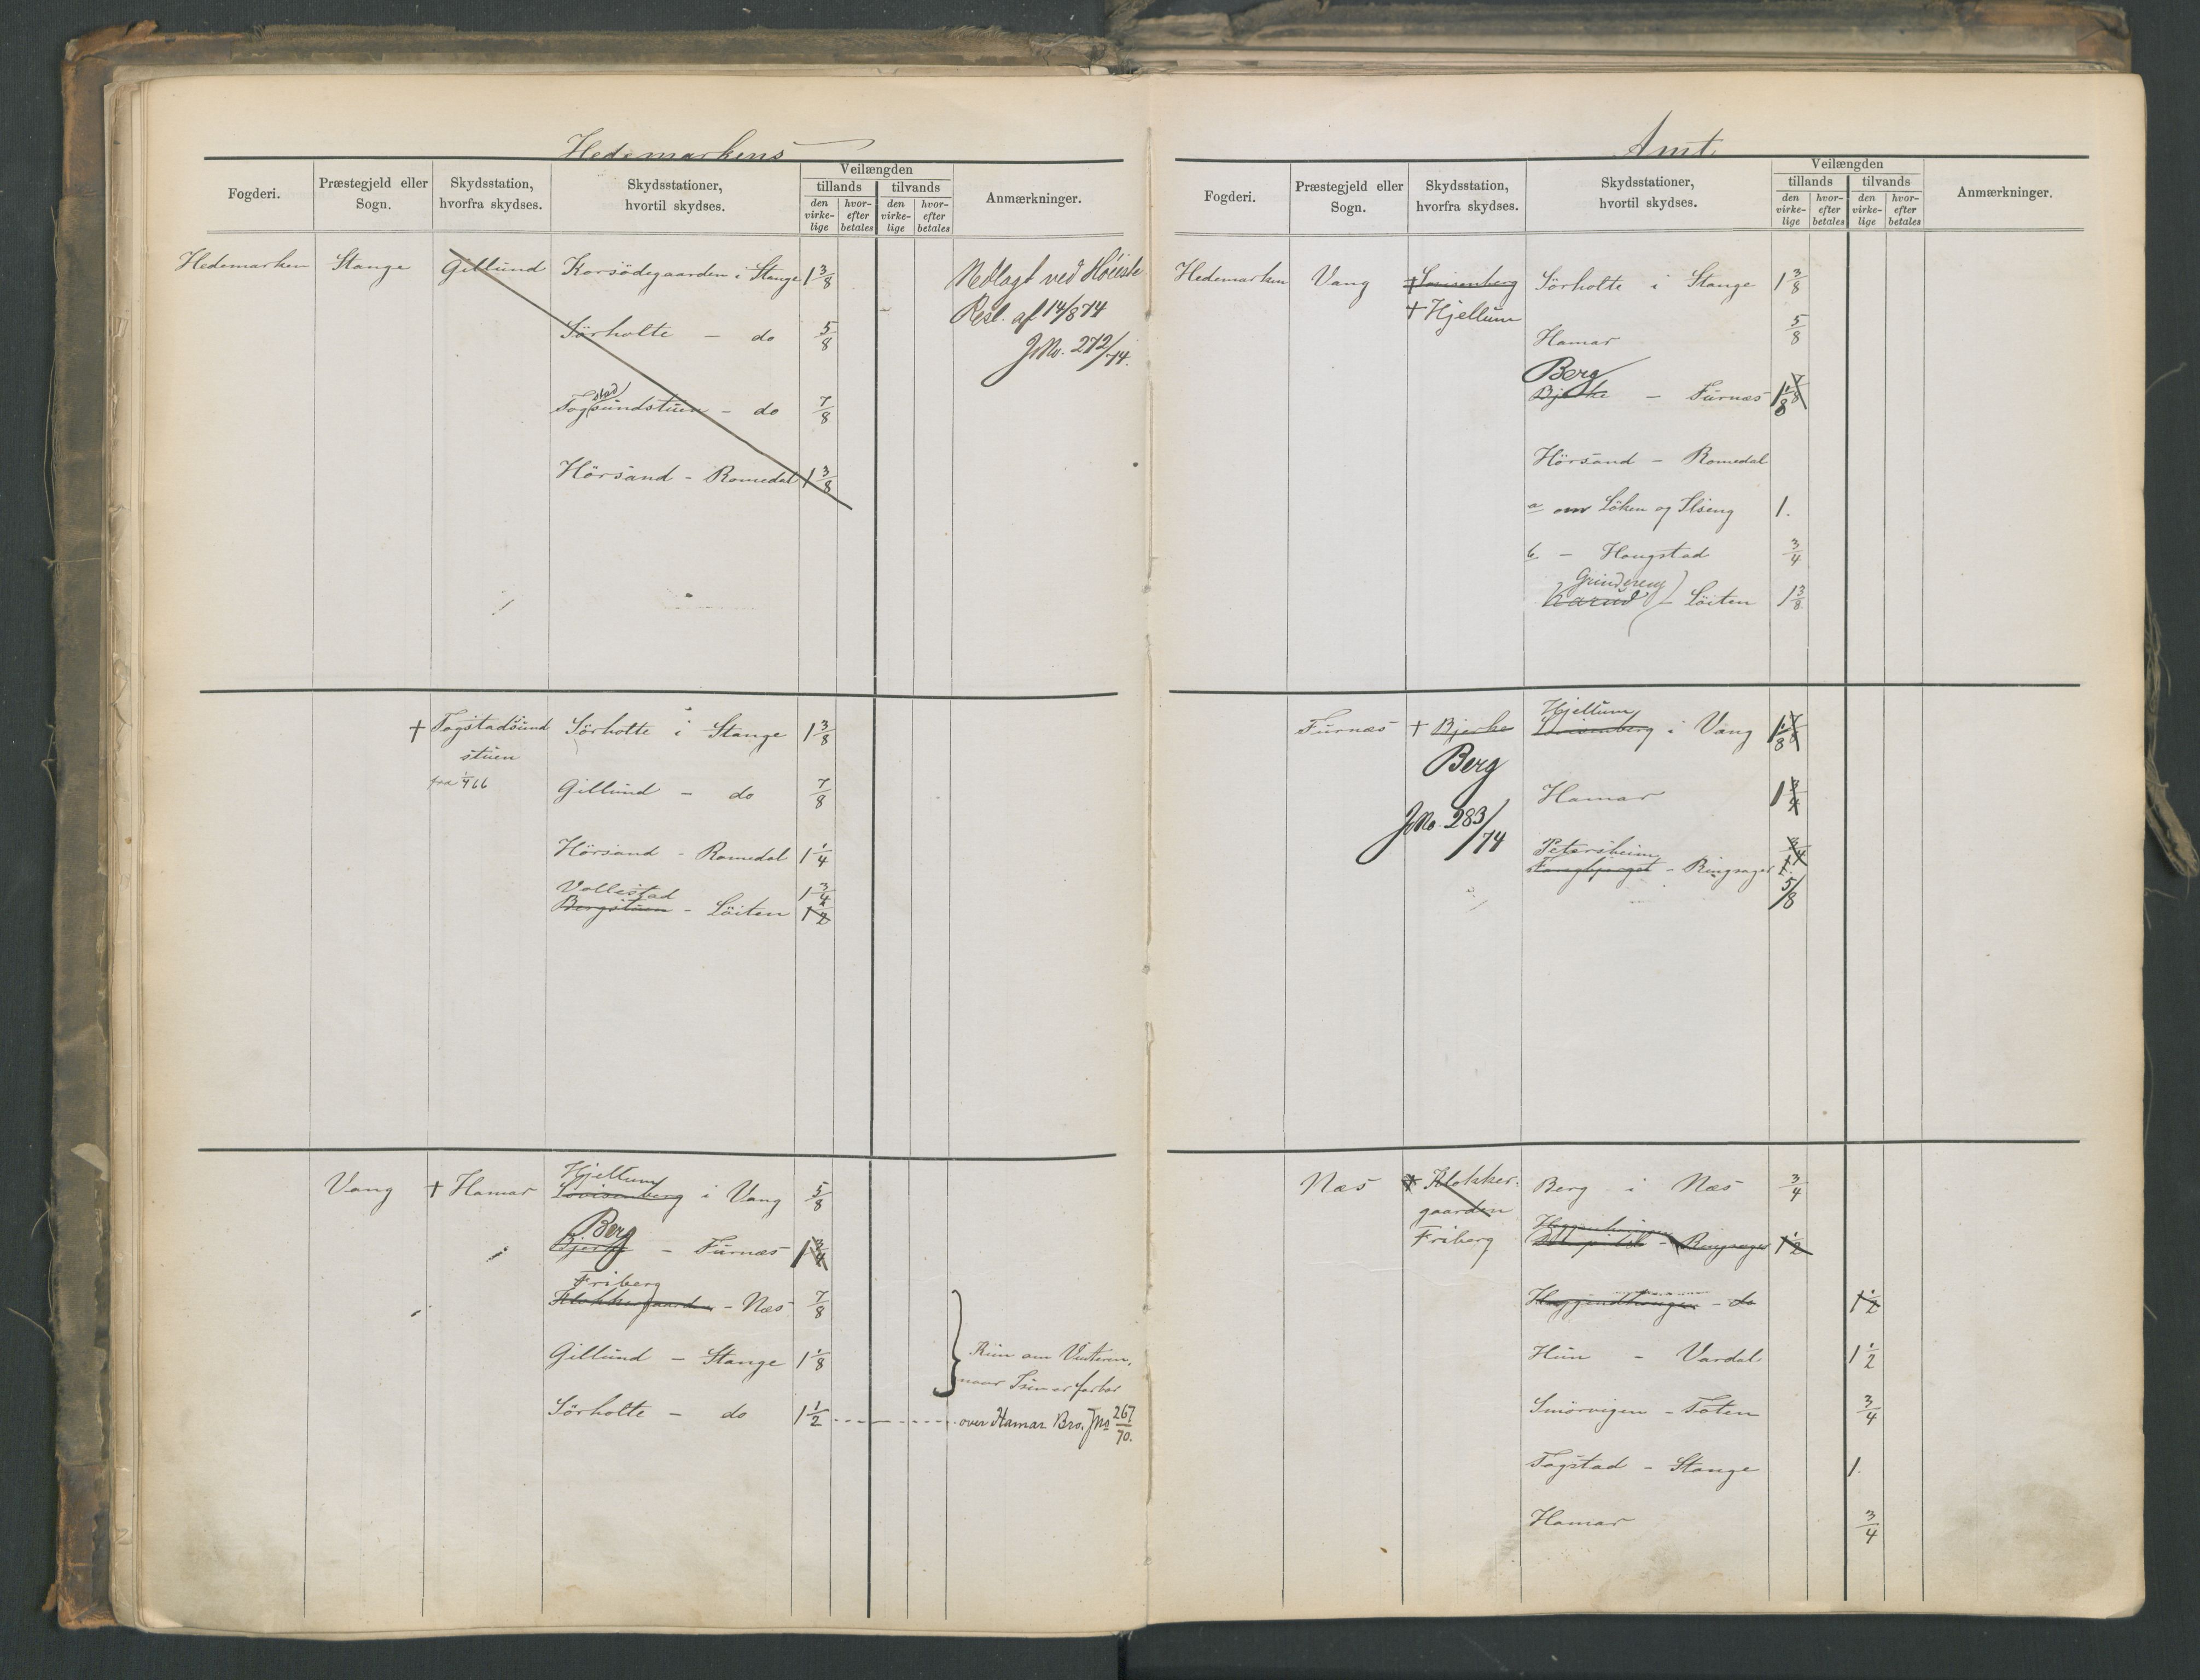 Hedemarkens
Fogderi.
Præstegjeld eller
Sogn.
Skydsstation,
hvorfra skydses.
Skydsstationer,
hvortil skydses.
Veilængden
tillands
tilvands
den virke-lige
hvor-efter betales
den virke-lige
hvor-efter betales
Anmærkninger.
Hedemarken Stange Gillund Korsödegaarden i Stange 1 3/8
Nedlagt ved Höieste
Resl. af 14/8 74
JNo. 272/74.
Sörholte - do 5/8
stad
Togsundstuen - do 7/8
Hörsand - Romedal 1 3/8
† Togstadsund
stuen
fra 1/4 66
Sörholte i Stange 1 3/8
Gillund - do 7/8
Hörsand - Romedal 1 1/4
Vollestad 1 3/4
Bergstuen - Löiten
Vang † Hamar
Hjellum
Lovisenberg i Vang 5/8
Berg
Bjerke - Furnæs 1 3/4
Friberg
Klokkergaarden - Næs 7/8
Gillund - Stange 1 1/8
Kun om Vinteren,
naar Isen er farbar
Sörholte - do 1 1/2
over Hamar Bro. JNo 267/70.
Amt
Fogderi.
Præstegjeld eller
Sogn.
Skydsstation,
hvorfra skydses.
Skydsstationer,
hvortil skydses.
Veilængden
tillands
tilvands
den virke-lige
hvor-efter betales
den virke-lige
hvor-efter betales
Anmærkninger.
Hedemarken Vang † Lovisenberg Sörholte i Stange 1 3/8
† Hjellum
Hamar 5/8
Berg
Bjerke - Furnæs 1 1/8
Hörsand - Romedal
a om Löken og Ilseng 1.
b - Haugstad 3/4
Grindereng
Karud - Löiten 1 3/8
Furnæs † Bjerke
Berg
JNo. 283/74
Hjellum
Lovisenberg i Vang 1 1/8
Hamar 1
Petersheim
- Ringsager 5/8
Næs † Klokker-
gaarden
Friberg
Berg i Næs 3/4
- Ringsager 1 1/2
- do 1 1/2
Hun - Vardal 1 1/2
Smörvigen - Toten 3/4
Togstad - Stange 1.
Hamar 3/4